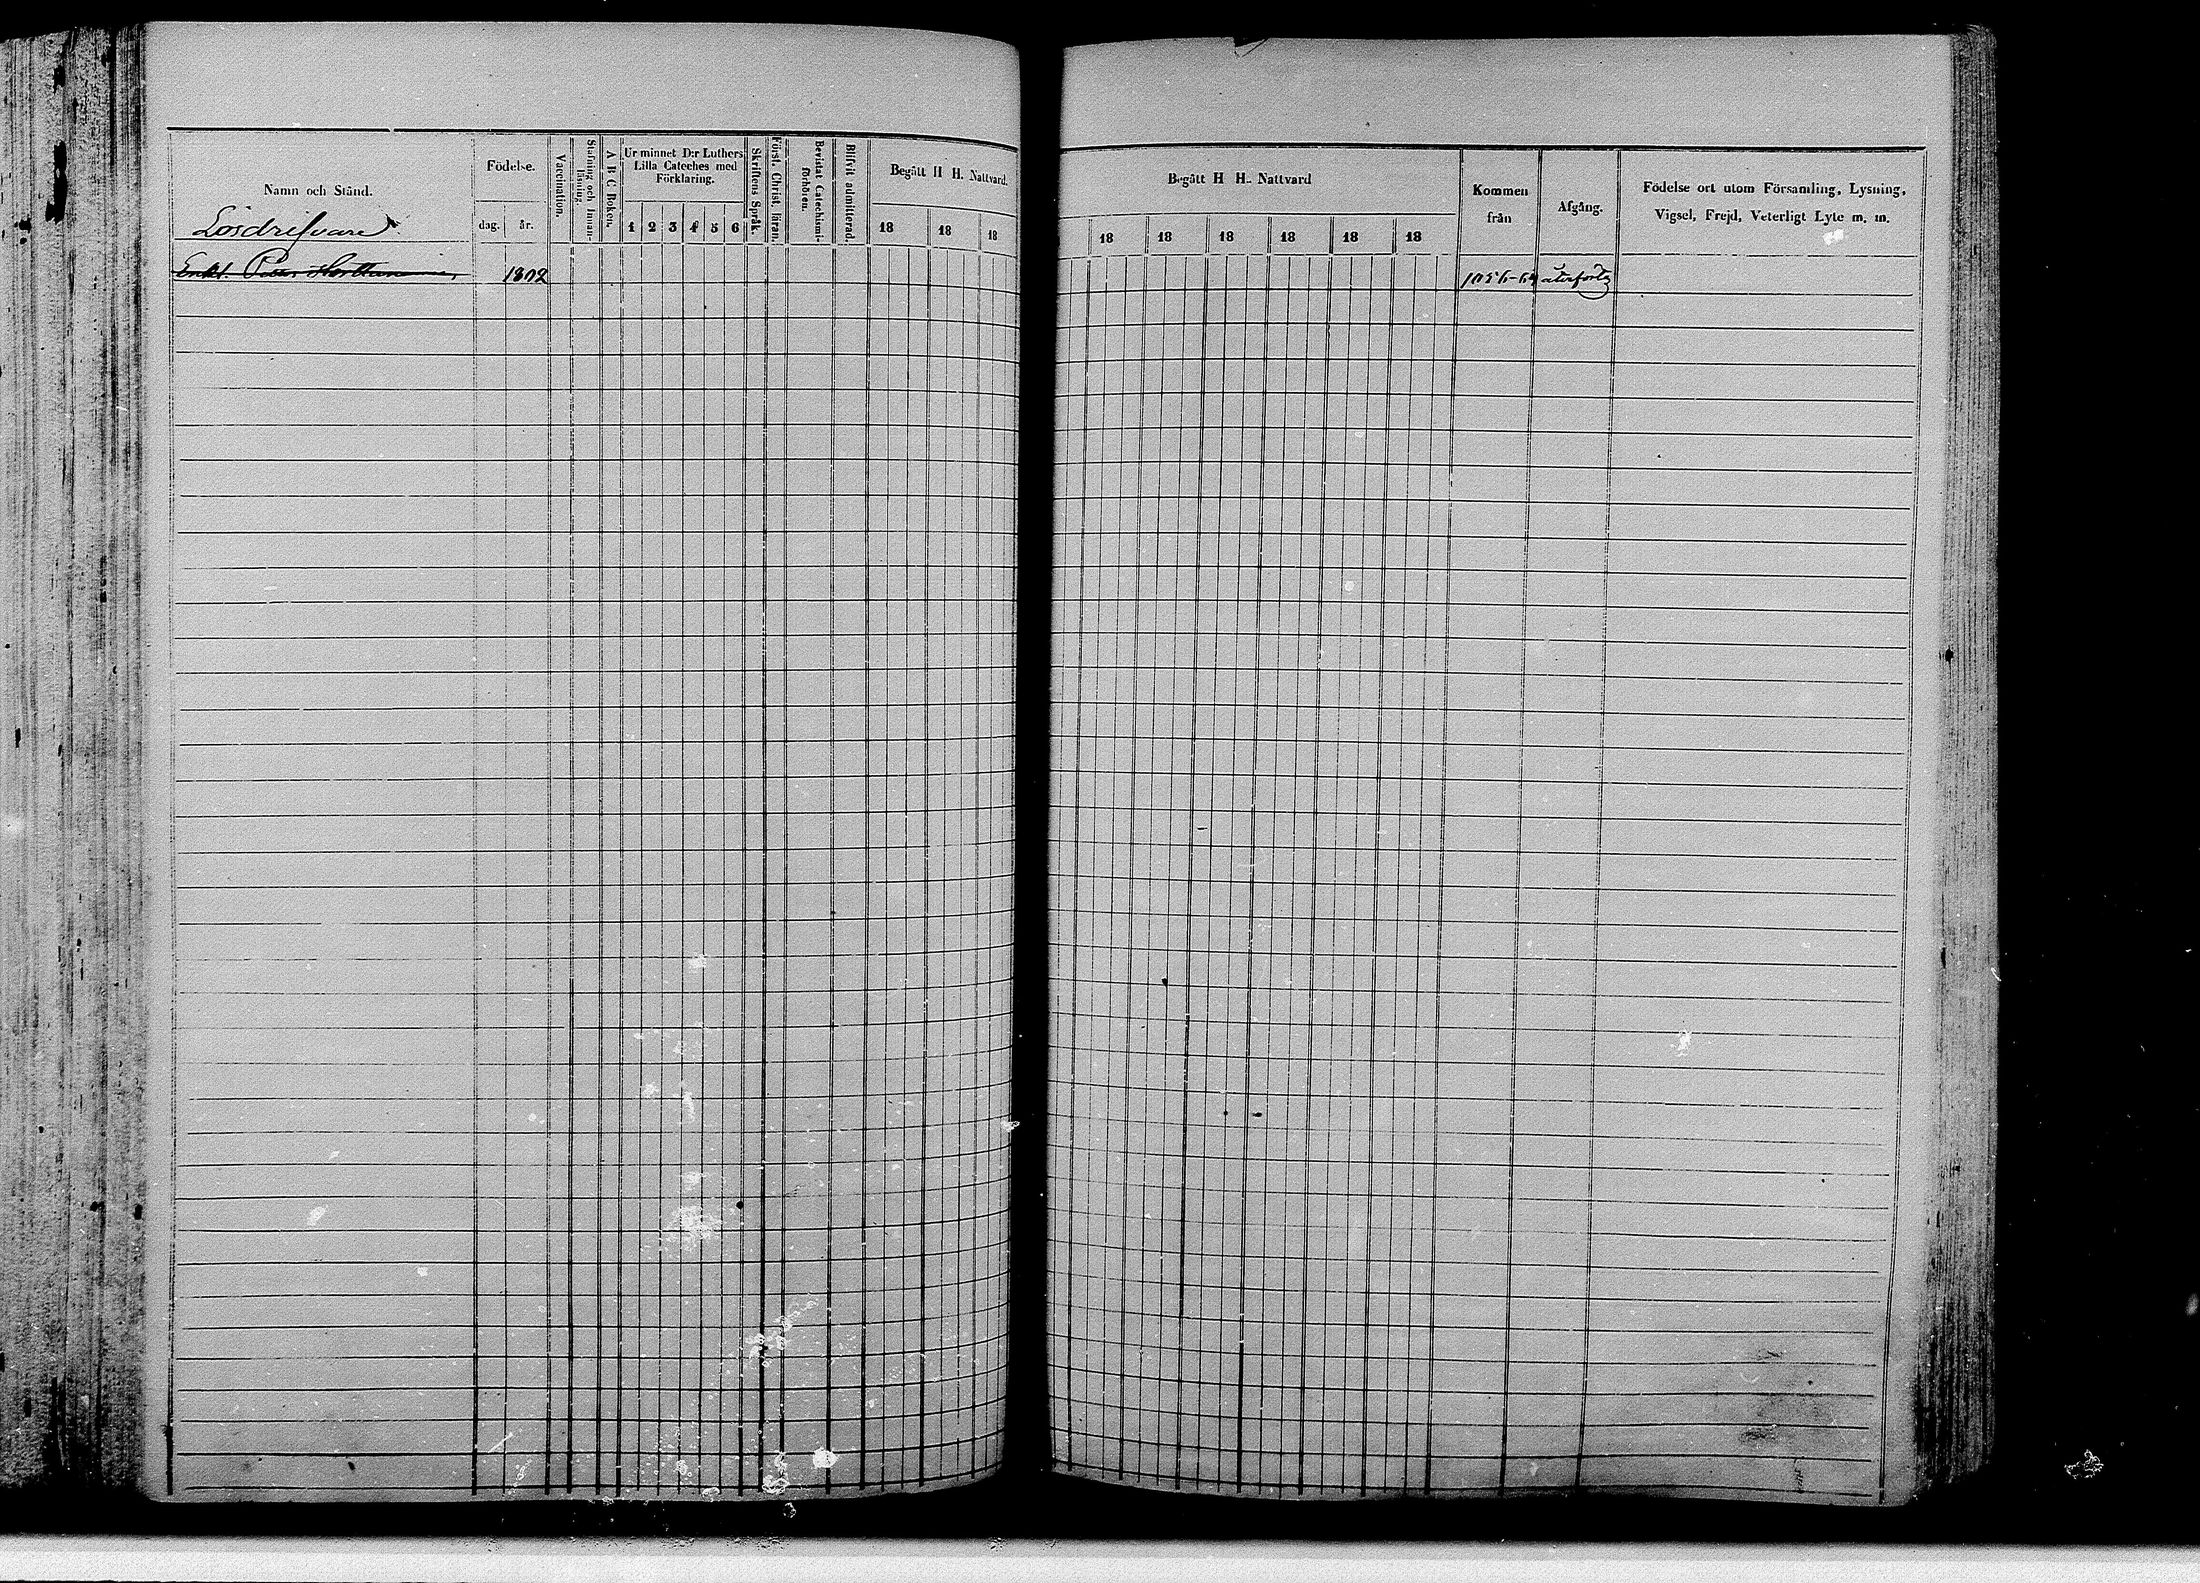 Namn och Stånd.
Lösdrifvare
Födelse.
dag. år.
Vaccination.
Stafning och Innan-
läsning.
A B C Boken.
Ur minnet D:r Luthers
Lilla Cateches med
Förklaring.
1 2 3 4 5 6
Skriftens Språk.
Först. Christ. läran.
Bevistat Catechismi-
förhören.
Blifvit admitterad.
Begått H H. Nattvard.
18 18 18
Begått H H. Nattvard
18 18 18 18 18 18
Kommen
från
Afgång.
Födelse ort utom Församling, Lysning,
Vigsel, Frejd, Veterligt Lyte m. m.
Enkl. 1802